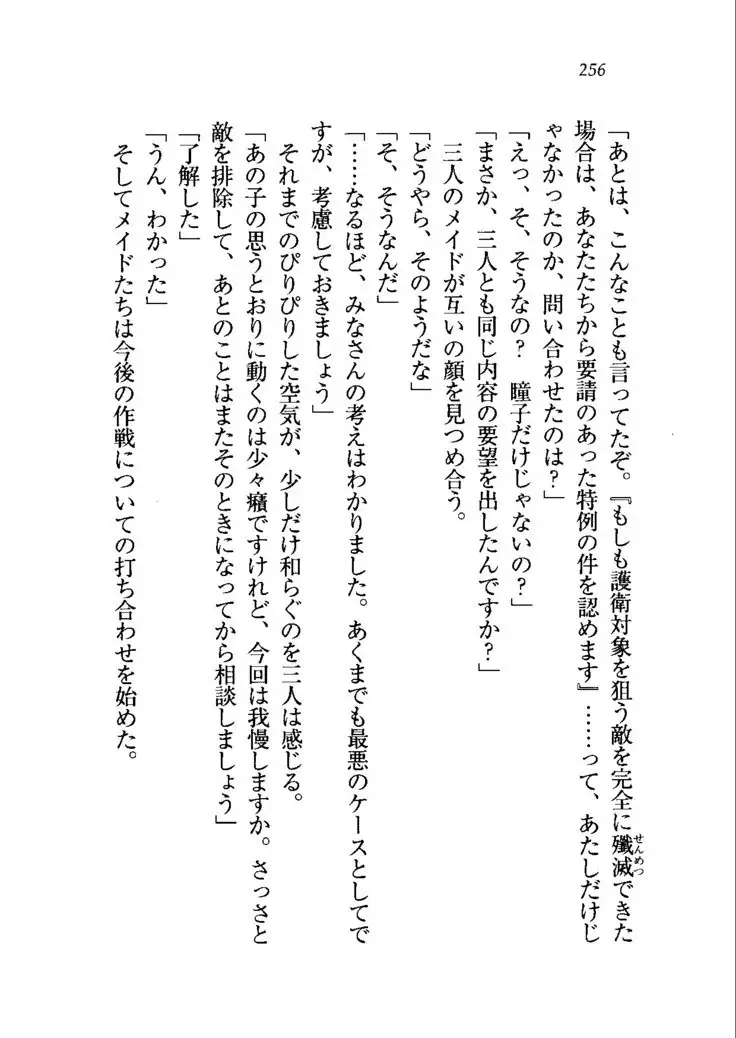 256
「あとは、こんなことも言ってたぞ。『もしも護衛対象を狙う敵を完全に殲滅できた
せんめつ
場合は、あなたたちから要請のあった特例の件を認めます』……って、あたしだけじ
ゃなかったのか、問い合わせたのは？」
「えっ、そ、そうなの？　瞳子だけじゃないの？」
「まさか、三人とも同じ内容の要望を出したんですか？」
三人のメイドが互いの顔を見つめ合う。
「どうやら、そのようだな」
「そ、そうなんだ」
「……なるほど、みなさんの考えはわかりました。あくまでも最悪のケースとしてで
すが、考慮しておきましょう」
それまでのぴりぴりした空気が、少しだけ和らぐのを三人は感じる。
「あの子の思うとおりに動くのは少々癪ですけれど、今回は我慢しますか。さっさと
敵を排除して、あとのことはまたそのときになってから相談しましょう」
「了解した」
「うん、わかった」
そしてメイドたちは今後の作戦についての打ち合わせを始めた。